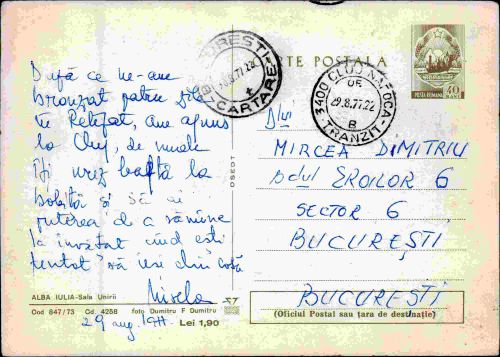 După ce ne-am
bronzat patru zile
în Retezat, am ajuns
la Cluj, de unde
Îți urez baftă la
boliță și să ai
puterea de a rămîne
la învățat cînd ești
tentat să ieși din casă
Mirela
ALBA IULIA-Sala Unirii
Cod 847/73 Cd. 4258 foto Dumitru F Dumitru
29 aug. Lei 1,90
BUCUREȘTI
.8.77.22
CARTARE
CARTE POSTALA
POSTA ROMANA 40 BANI
3400 CLUJ NAPOCA
OF
29.8.77.22
B
TRANZIT
Dlui
MIRCEA DIMITRIU
Bdul EROILOR 6
SECTOR 6
BUCUREȘTI
BUCUREȘTI
(Oficiul Postal sau țara de destinație)